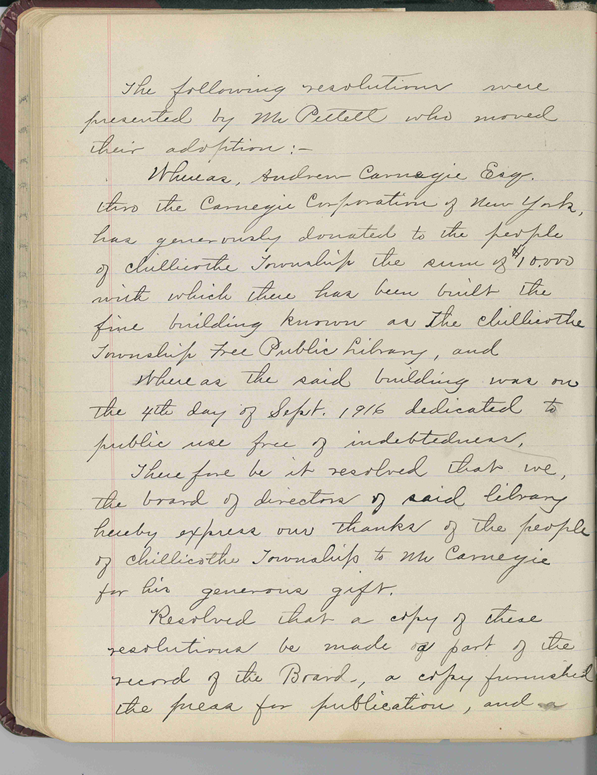 The following resolutions were
presented by Mr Pettett who moved
their adoption:-
Whereas, Andrew Carnegie Esq.
thro the Carnegie Corporation of New York,
has generously donated to the people
of Chillicothe Township the sum of $10.000
with which there has been built the
fine building known as The Chillicothe
Township Free Public Library, and
Whereas the said building was on
the 4th day of Sept. 1916 dedicated to
public use free of indebtedness,
Therefore be it resolved that we,
the board of directors of said library
hereby express our thanks of the people
of Chillicothe Township to Mr Carnegie
for his generous gift.
Resolved that a copy of these
resolutions be made a part of the
record of the Board, a copy furnished
the press for publication, and